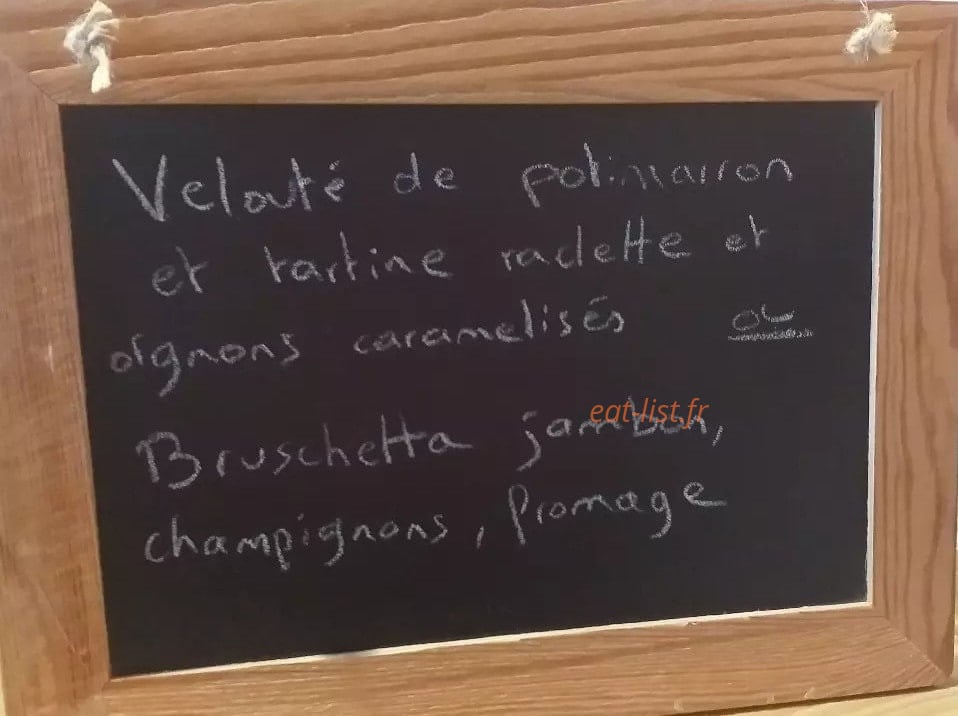 Velouté de potimarron
et tartine raclette et
oignons caramelisés ou
eat-list.fr
Bruschetta jambon,
champignons, fromage